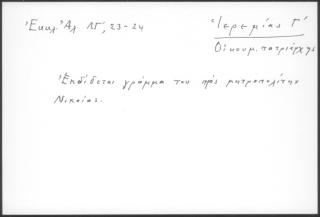 Ἐκκλ. Ἀλ. ΛΓ', 23-24
Ἱερεμίας Γ'
Οἰκουμ. πατριάρχης
Ἐκδίδεται γράμμα του πρὸς μητροπολίτην
Νικαίας.